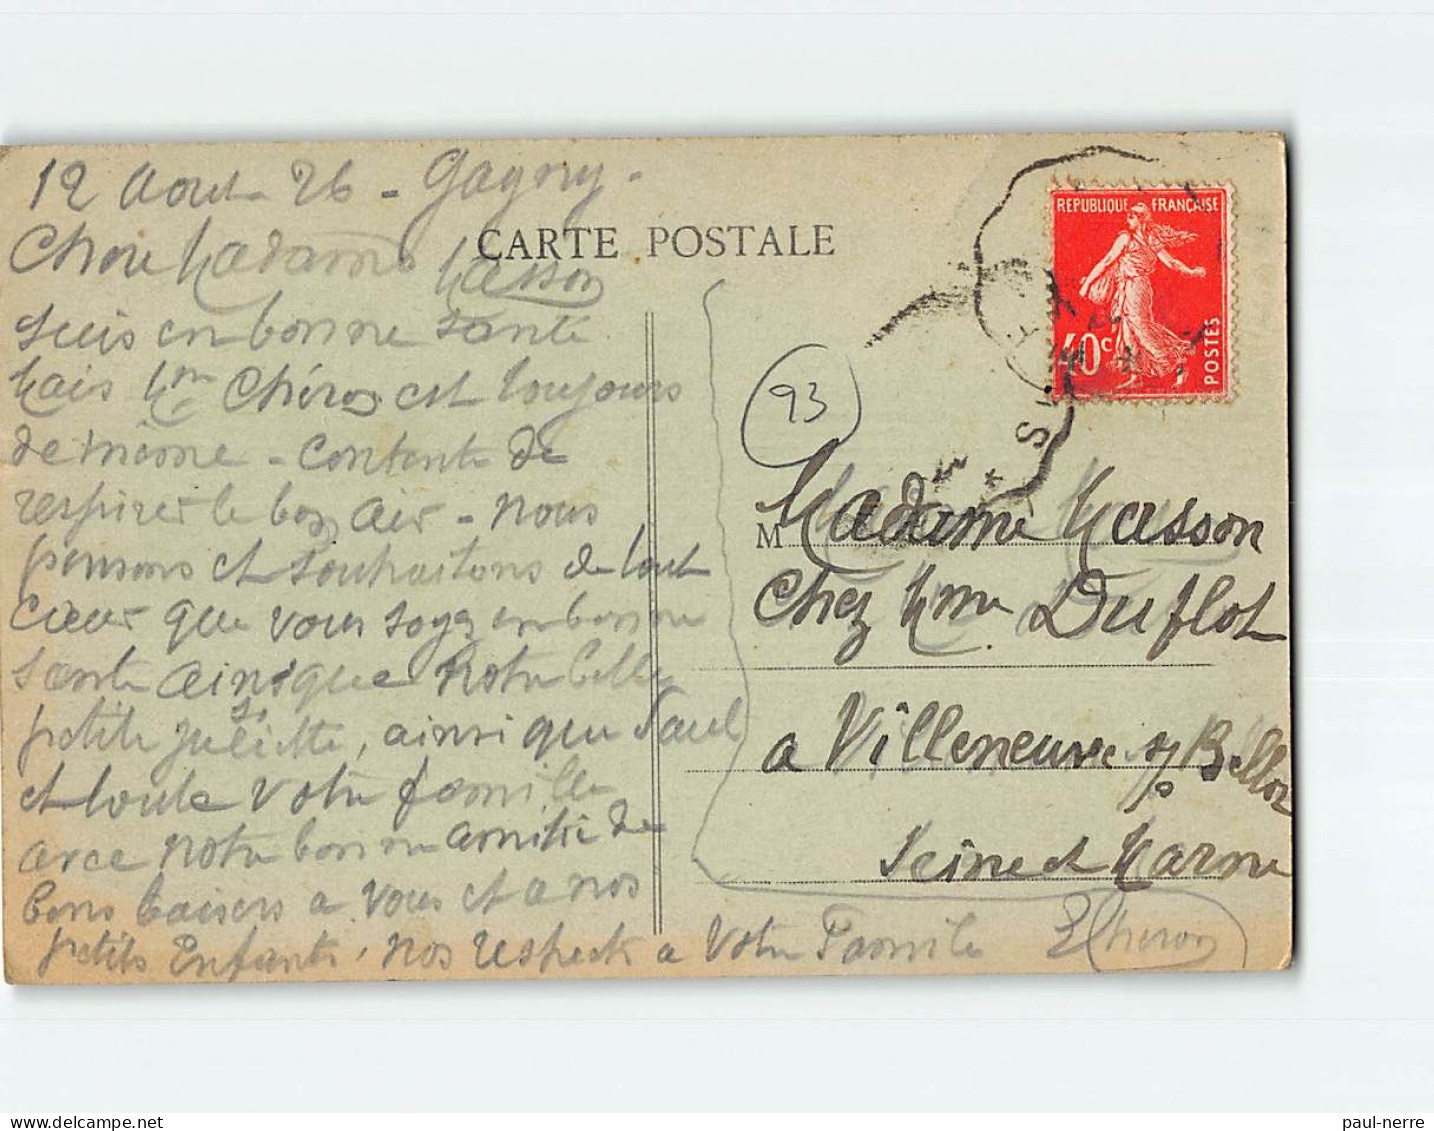 12 Aout 26 - Gagny -
CARTE POSTALE
Chère Madame Masson
suis en bonne santé
Mais Mme Chéron est toujours
de même - contente de
respirer le bon air - nous
pensons et souhaitons de tout
cœur que vous soyez en bonne
santé ainsi que Notre belle
petite Juliette, ainsi que Paul
et toute votre famille
avec notre bonne amitié de
bons baisers a vous et a nos
petits Enfants, nos respects a Votre Famille EChéron
REPUBLIQUE FRANÇAISE
40c
POSTES
93
M Madame Masson
Chez Mme Duflot
a Villeneuve s/s Bellot
Seine et Marne
paul-nerre